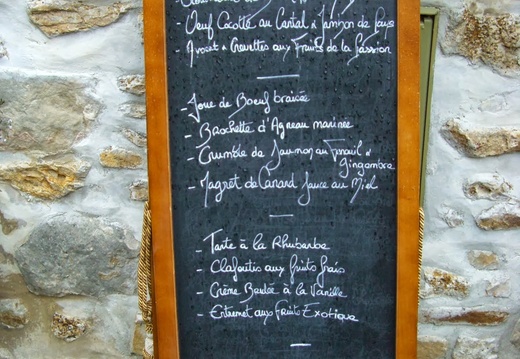 - Oeuf Cocotte au Cantal & Jambon de Pays
- Avocat & Crevettes aux Fruits de la Passion
- Joue de Boeuf braisée
- Brochette d'Agneau marinée
- Crumble de Saumon au Fenouil &
Gingembre
- Magret de Canard Sauce au Miel
- Tarte à la Rhubarbe
- Clafoutis aux fruits frais
- Crème Brulée à la Vanille
- Entremet aux Fruits Exotique